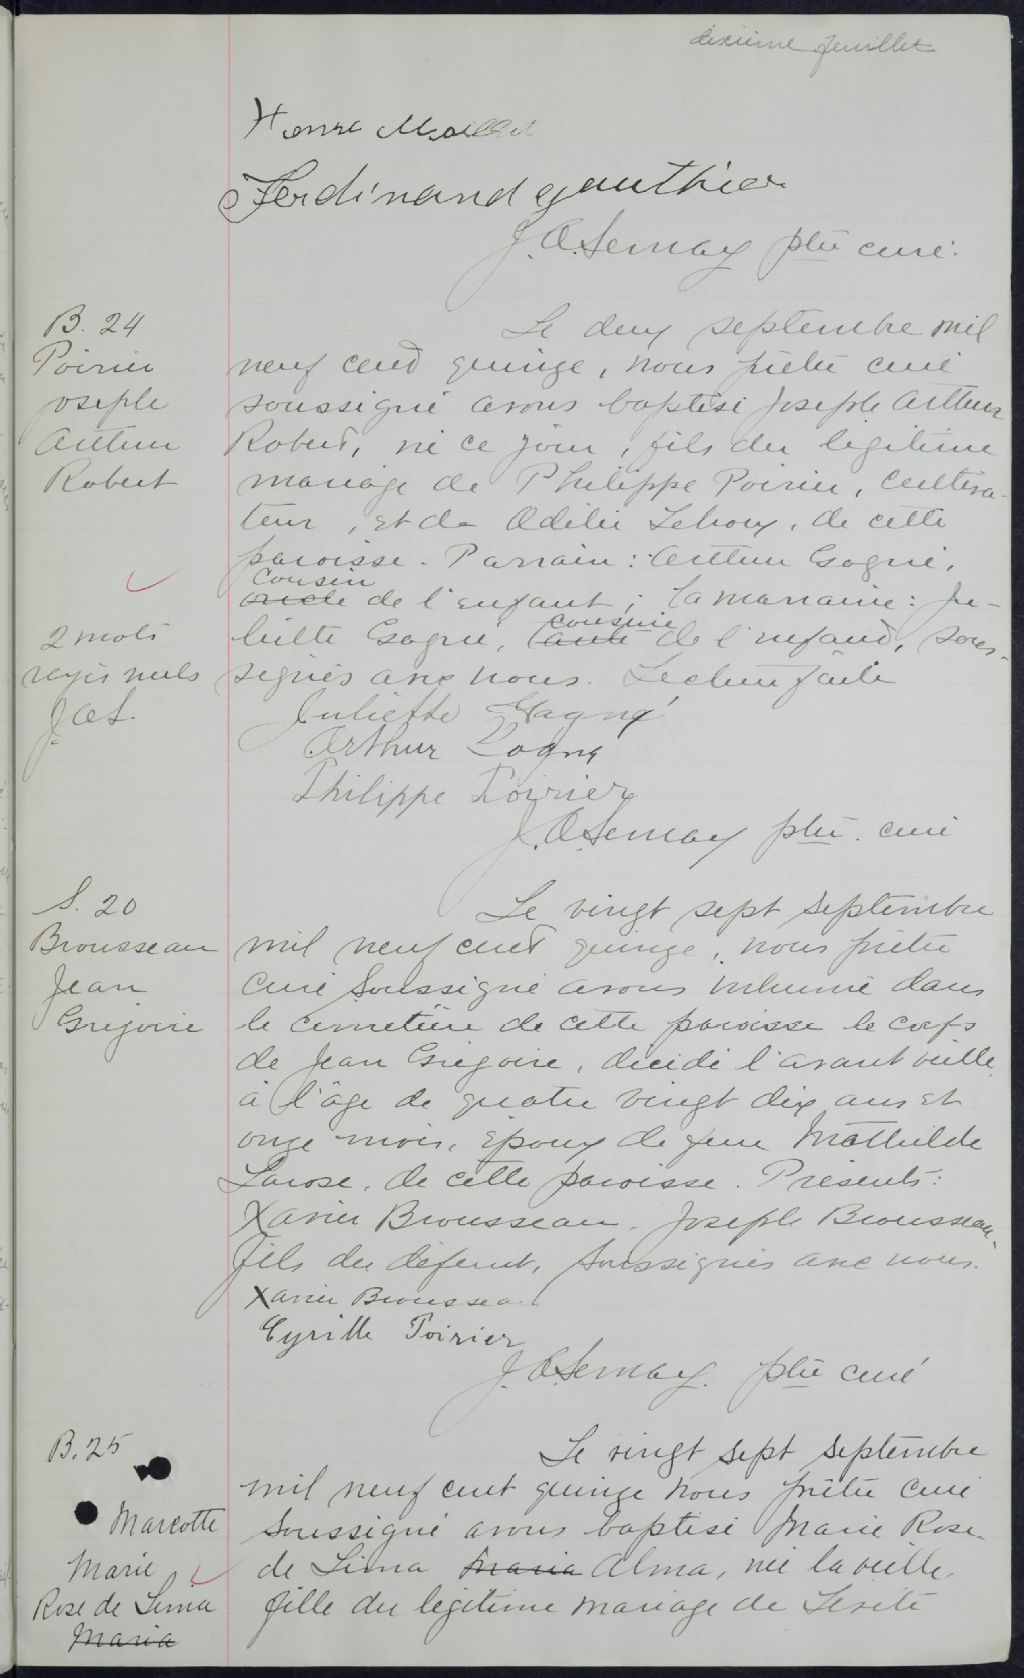 dixième feuillet
Henri Maillet
Ferdinand Gauthier
J.O. Lemay ptre curé.
B. 24
Poirier
Joseph
Arthur
Robert
Le deux septembre mil
neuf cent quinze, nous prêtre curé
soussigné avons baptisé Joseph Arthur
Robert, né ce jour, fils du légitime
mariage de Philippe Poirier, cultiva-
teur, et de Odélie Lehoux, de cette
paroisse. Parrain: Arthur Gagné,
cousin
oncle de l'enfant; la marraine: Ju-
cousine
liette Gagné, tante de l'enfant, sous-
signés avec nous. Lecture faite
2 mots
rayés nuls
J.O.L.
Juliette Gagné
Arthur Gagné
Philippe Poirier
J.O. Lemay ptre. curé
S. 20
Brousseau
Jean
Grégoire
Le vingt sept septembre
mil neuf cent quinze, nous prêtre
curé soussigné avons inhumé dans
le cimetière de cette paroisse le corps
de Jean Grégoire, décédé l'avant veille,
à l'âge de quatre vingt dix ans et
onze mois, époux de feue Mathilde
Larose, de cette paroisse. Présents:
Xavier Brousseau, Joseph Brousseau,
fils du défunt, soussignés avec nous.
Xavier Brousseau
Cyrille Poirier
J.O. Lemay. ptre curé
B. 25
Marcotte
Marie
Rose de Lima
Maria
Le vingt sept septembre
mil neuf cent quinze nous prêtre curé
soussigné avons baptisé Marie Rose-
de Lima Maria Alma, née la veille,
fille du légitime mariage de